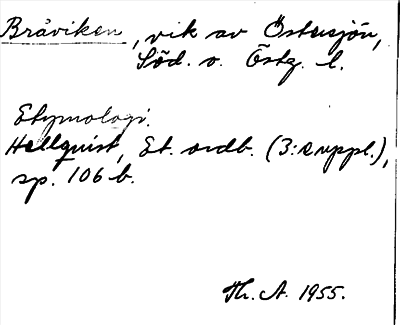 Bråviken, vik av Östersjön,
Söd. o. Östg. l.
Etymologi.
Hellquist, Et. ordb. (3: suppl.),
sp. 106 b.
Th. A. 1955.